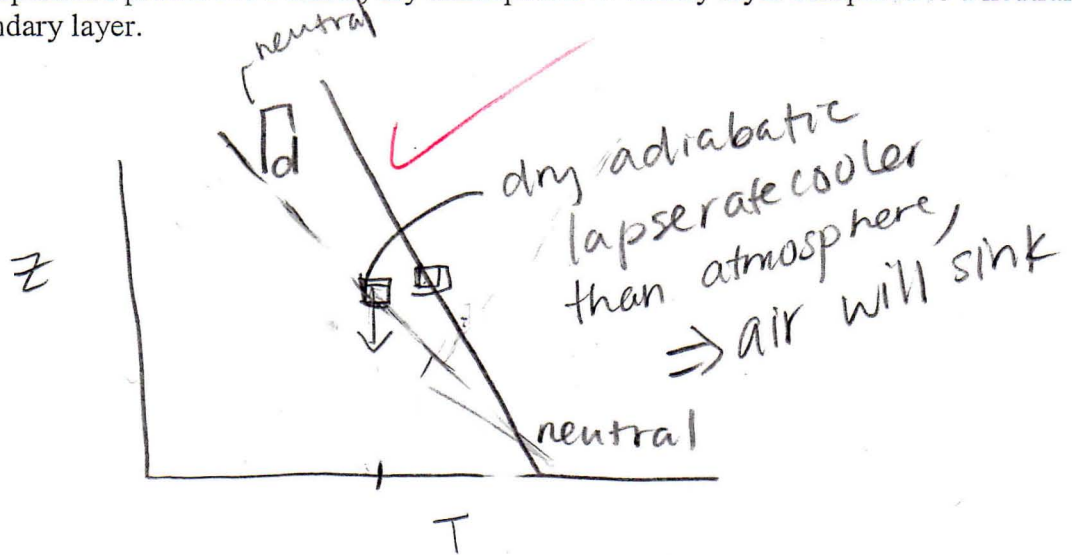 ndary layer.
neutral
Γd
dry adiabatic
lapse rate cooler
than atmosphere,
⇒ air will sink
Z
neutral
T